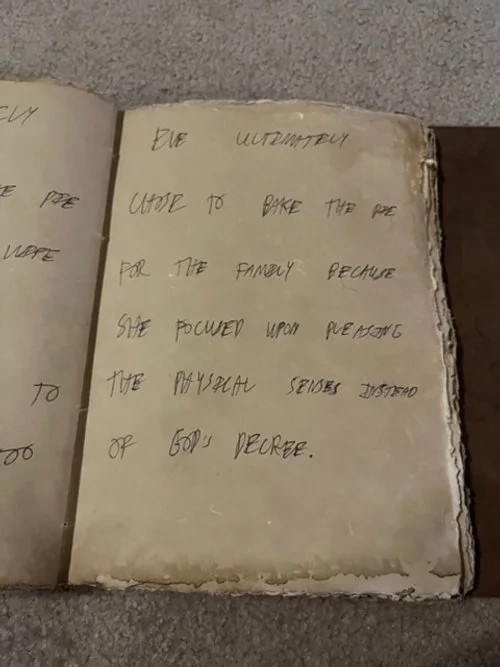 ELY
PIE
TO
EVE ULTIMATELY
CHOSE TO BAKE THE PIE
FOR THE FAMILY BECAUSE
SHE FOCUSED UPON PLEASING
THE PHYSICAL SENSES INSTEAD
OF GOD'S DECREE.